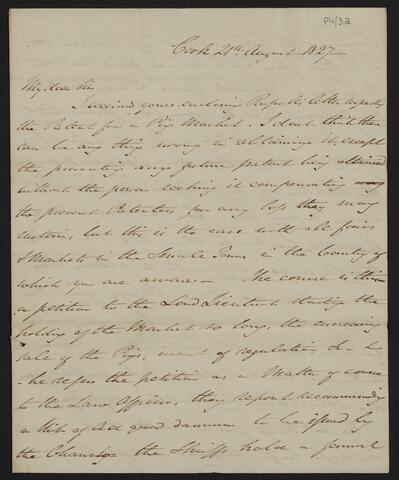 P4/32
Cork 21st August 1827
My dear Sir
I received yours enclosing letter respecting
the Patent for a Pig Market. I dont think there
can be any thing wrong in obtaining it, except
the preventing any future patent being obtained
without the person seeking it compensating
the present Patentees for any loss they may
sustain, but this is the case with all fairs
& Markets in the Small Towns in the Country of
which you are aware – The course is this
a petition to the Lord Lieutenant stating the
holding of the Market so long, the increasing
sale of the Pigs, want of regulations &c &c
– he refers the petition as a Matter of course
to the Law Officers, they report recommending
a Writ of Ad quod damnum to be issued by
the Chancellor the Sheriff holds a formal